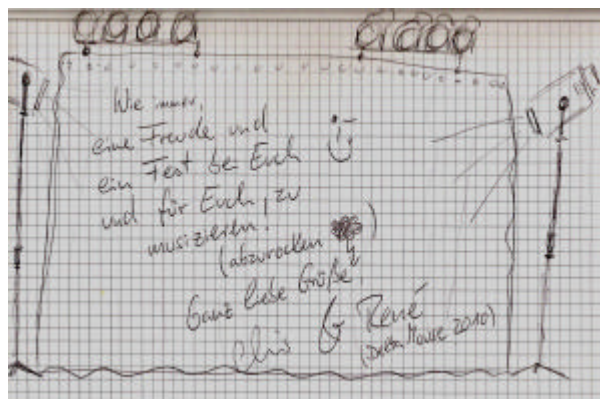 Wie immer,
eine Freude und
ein Fest bei Euch
und für Euch, zu
musizieren!
(abzurocken )
Ganz liebe Grüße,
Chris & René
2010)